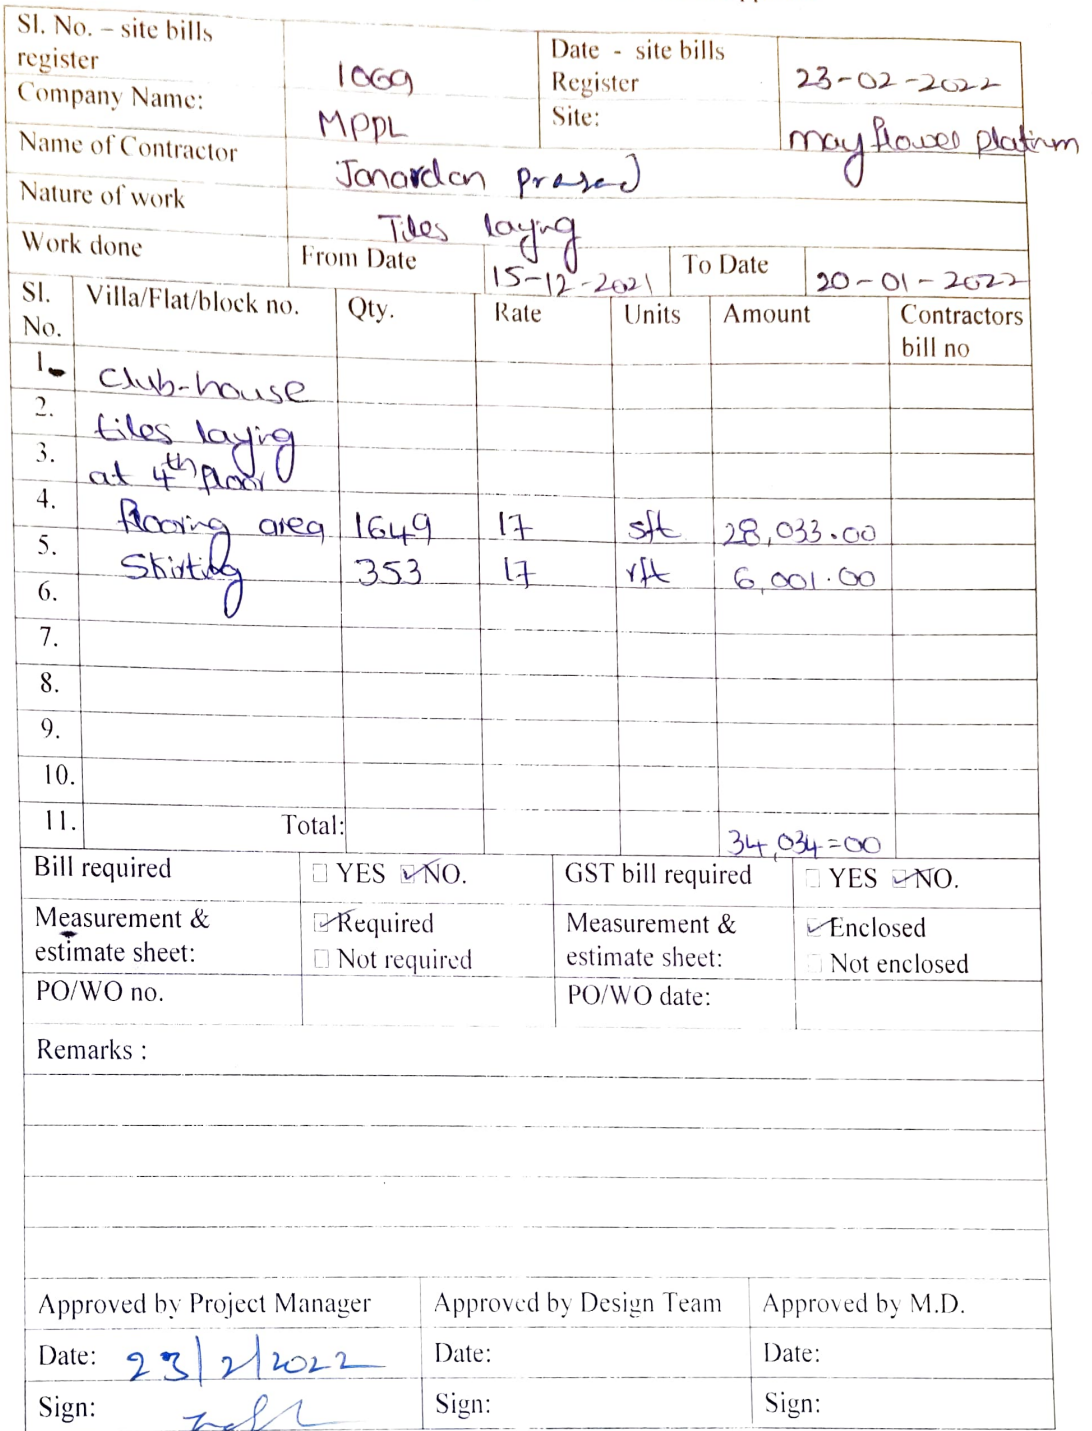 Sl. No. – site bills register 1069 Date - site bills Register 23-02-2022
Company Name: MPPL Site: mayflower platinm
Name of Contractor Janardan prasad
Nature of work Tiles laying
Work done From Date 15-12-2021 To Date 20-01-2022
Sl. No. Villa/Flat/block no. Qty. Rate Units Amount Contractors bill no
1. club-house
2. tiles laying
3. at 4th floor
4. flooring area 1649 17 sft 28,033.00
5. Skirting 353 17 rft 6,001.00
6.
7.
8.
9.
10.
11. Total: 34,034=00
Bill required YES NO. GST bill required YES NO.
Measurement & estimate sheet: Required Measurement & estimate sheet: Enclosed
Not required Not enclosed
PO/WO no. PO/WO date:
Remarks :
Approved by Project Manager Approved by Design Team Approved by M.D.
Date: 23/2/2022 Date: Date:
Sign: Sign: Sign: